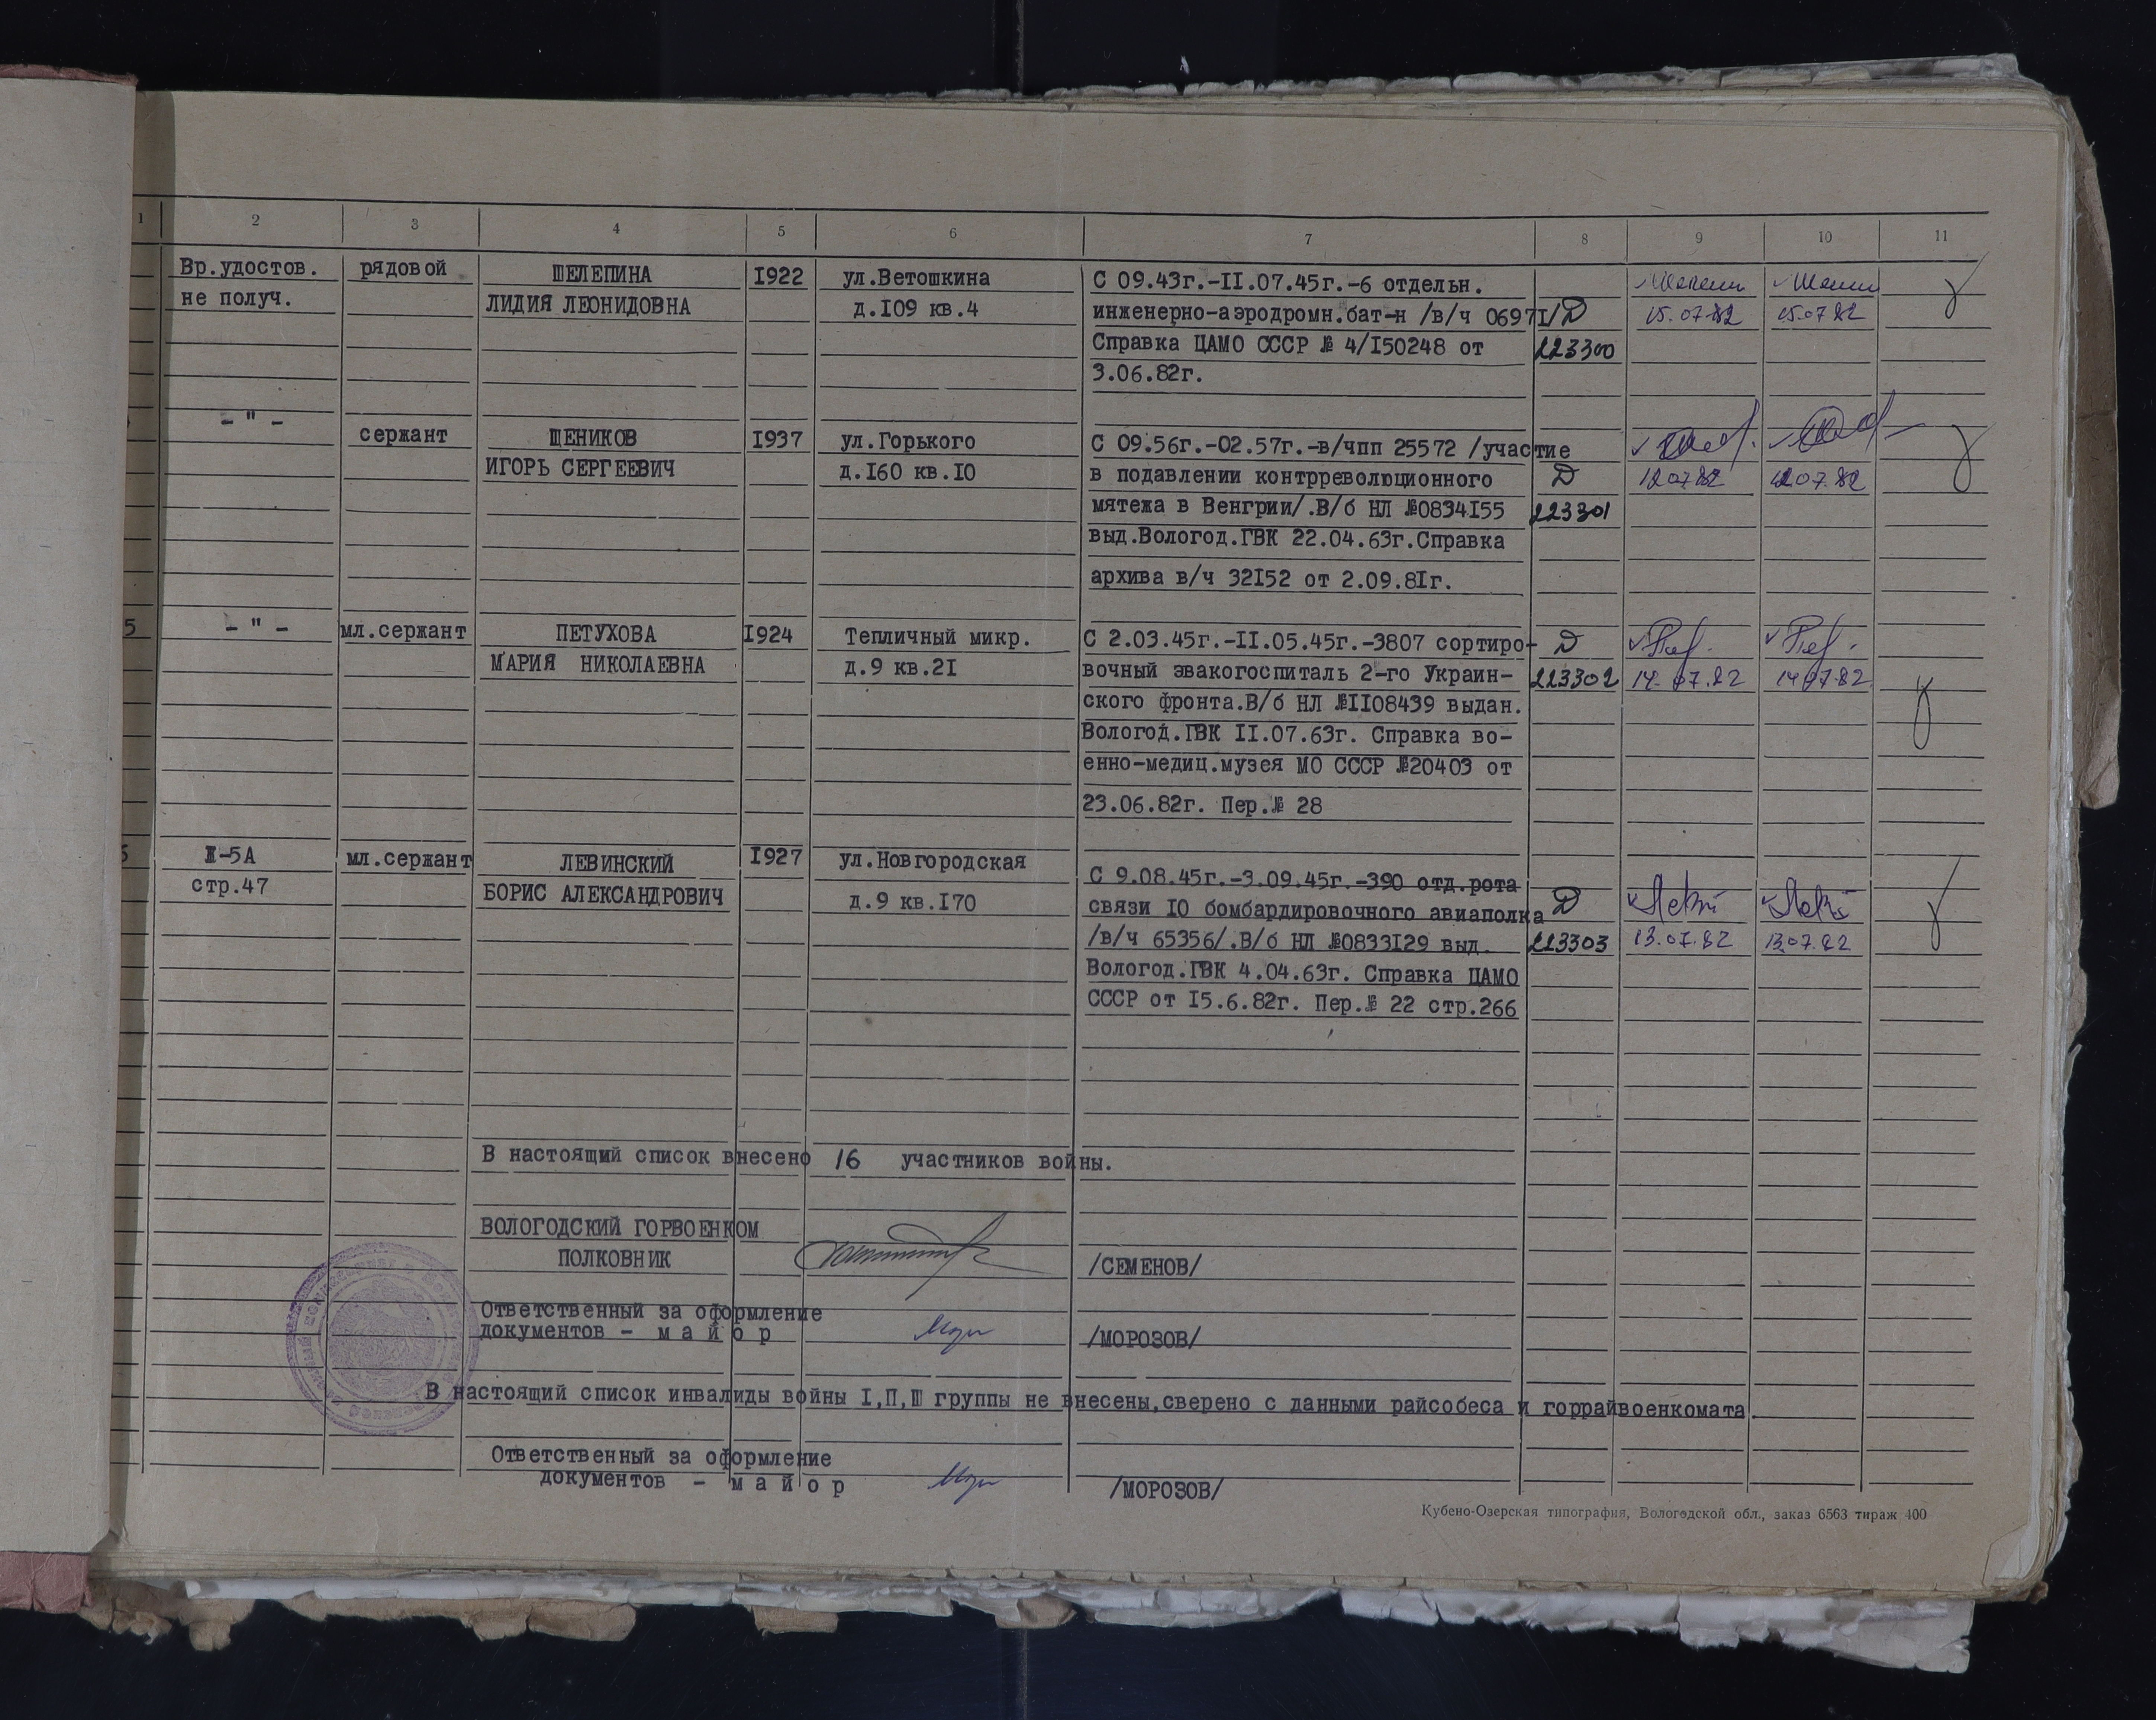 1 2 3 4 5 6 7 8 9 10 11
Вр.удостов. рядовой ШЕЛЕПИНА I922 ул.Ветошкина С 09.43г.-II.07.45г.-6 отдельн.
не получ. ЛИДИЯ ЛЕОНИДОВНА д.I09 кв.4 инженерно-аэродромн.бат-н /в/ч 0697I/ D 15.07.82 15.07.82
Справка ЦАМО СССР № 4/I50248 от 223300
3.06.82г.
- " - сержант ЩЕНИКОВ I937 ул.Горького С 09.56г.-02.57г.-в/чпп 25572 /участие
ИГОРЬ СЕРГЕЕВИЧ д.I60 кв.I0 в подавлении контрреволюционного D 12.07.82 12.07.82
мятежа в Венгрии/.В/б НЛ №0834I55 223301
выд.Вологод.ГВК 22.04.63г.Справка
архива в/ч 32I52 от 2.09.8Iг.
5 - " - мл.сержант ПЕТУХОВА I924 Тепличный микр. С 2.03.45г.-II.05.45г.-3807 сортиро- D
МАРИЯ НИКОЛАЕВНА д.9 кв.2I вочный эвакогоспиталь 2-го Украин- 223302 14.07.82 14.07.82
ского фронта.В/б НЛ №II08439 выдан.
Вологод.ГВК II.07.63г. Справка во-
енно-медиц.музея МО СССР №20403 от
23.06.82г. Пер.№ 28
6 Ж-5А мл.сержант ЛЕВИНСКИЙ I927 ул.Новгородская С 9.08.45г.-3.09.45г.-390 отд.рота
стр.47 БОРИС АЛЕКСАНДРОВИЧ д.9 кв.I70 связи I0 бомбардировочного авиаполка D
/в/ч 65356/.В/б НЛ №0833I29 выд. 223303 13.07.82 13.07.82
Вологод.ГВК 4.04.63г. Справка ЦАМО
СССР от I5.6.82г. Пер.№ 22 стр.266
В настоящий список внесено 16 участников войны.
ВОЛОГОДСКИЙ ГОРВОЕНКОМ
ПОЛКОВНИК /СЕМЕНОВ/
Ответственный за оформление
документов - м а й о р /МОРОЗОВ/
В настоящий список инвалиды войны I,П,Ш группы не внесены,сверено с данными райсобеса и горрайвоенкомата.
Ответственный за оформление
документов - м а й о р /МОРОЗОВ/
Кубено-Озерская типография, Вологодской обл., заказ 6563 тираж 400